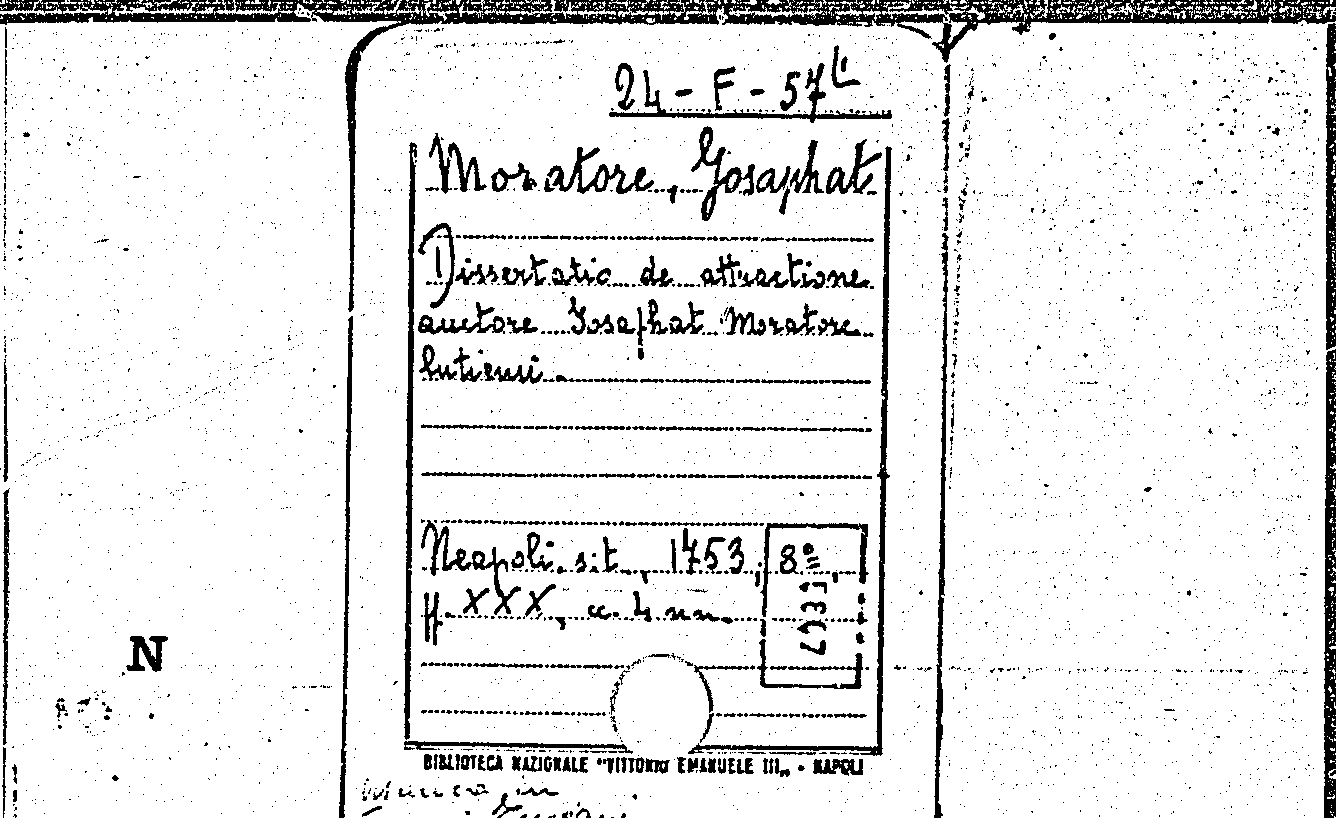 24 - F - 57 L1
Moratore, Josaphat
Dissertatio de attractione
auctore Josaphat Moratore
lutiensi.
Neapoli. s.t., 1753, 8º,
pp. XXX, cc. 4 nn.
N
BIBLIOTECA NAZIONALE "VITTORIO EMANUELE III„ - NAPOLI
Manca in